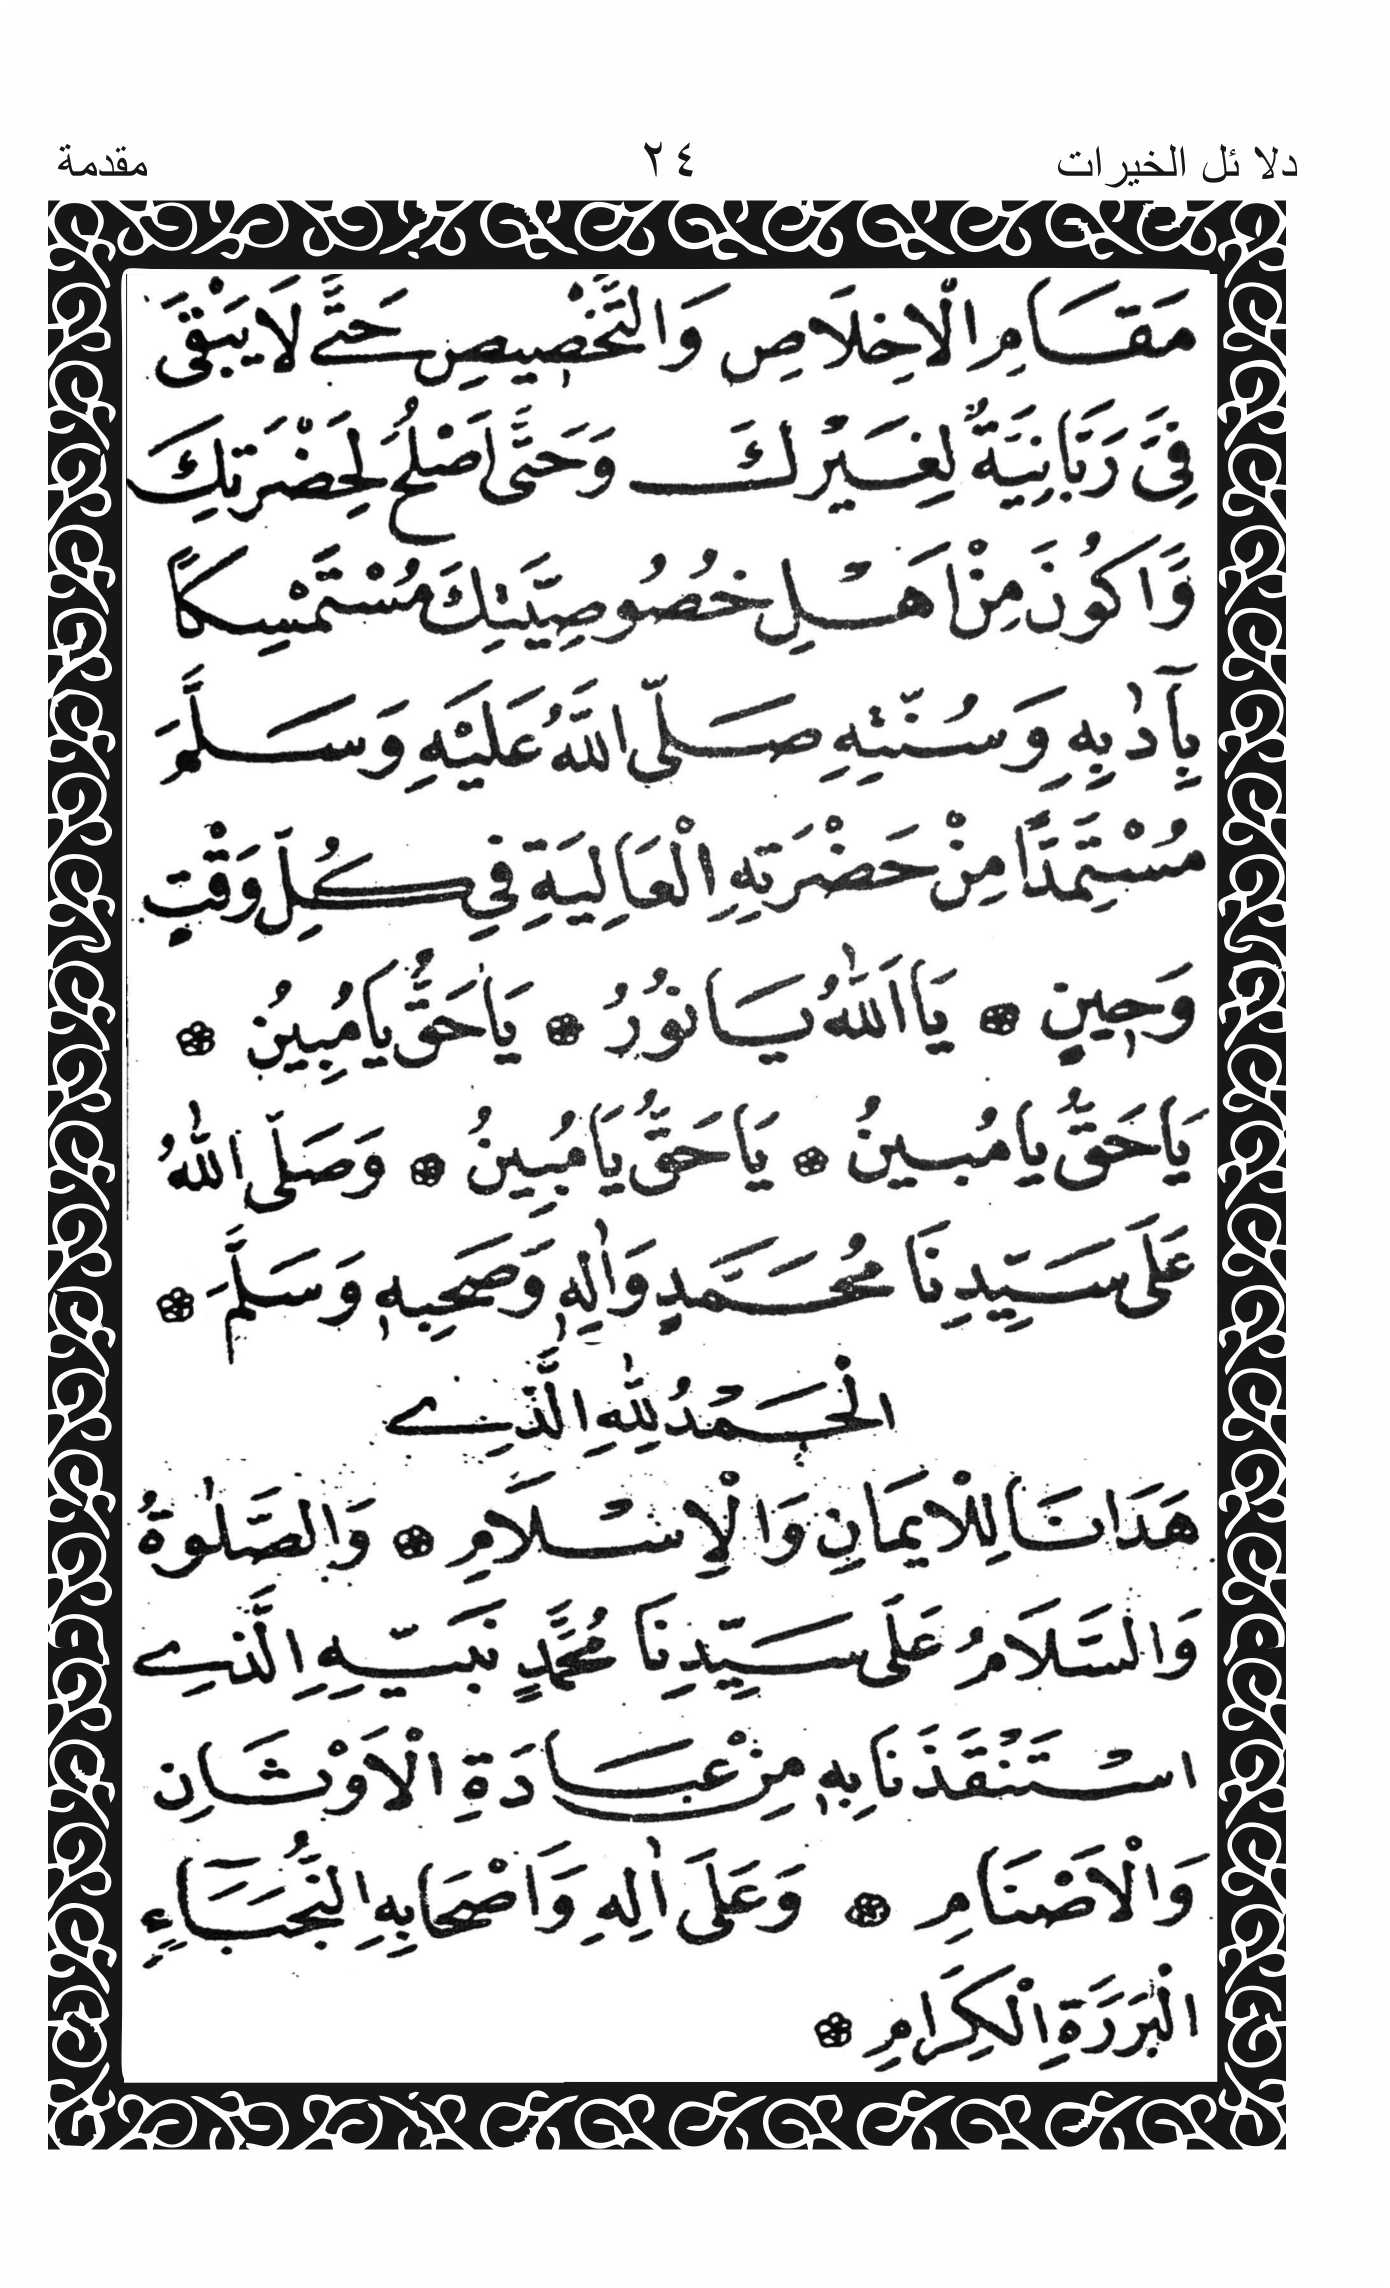 دلائل الخيرات ٢٤ مقدمة
مَقَامِ الْاِخِلَاصِ وَالتَّخْصٖيصِ حَتَّى لَا يَبْقٰى
فِىَّ رَبَّانِيَّةٌ لِغَيْرِكَ وَحَتَّى اَصْلُحَ لِحَضْرَتِكَ
وَّاَكُونَ مِنْ اَهْلِ خُصُوصِيَّتِكَ مُسْتَمْسِكًا
بِاٰدَابِهِ وَسُنَّتِهِ صَلَّى اللَّهُ عَلَيْهِ وَسَلَّمَ
مُسْتَمِدًّا مِنْ حَضْرَتِهِ الْعَالِيَةِ فِي كُلِّ وَقْتٍ
وَحٖينٍ ❁ يَا اَللّٰهُ يَا نُورُ ❁ يَا حَقُّ يَا مُبِينُ ❁
يَا حَقُّ يَا مُبينُ ❁ يَا حَقُّ يَا مُبِينُ ❁ وَصَلَّى اللّٰهُ
عَلَى سَيِّدِنَا مُحَمَّدٍ وَاٰلِهٖ وَصَحْبِهٖ وَسَلَّمَ ❁
الْحَمْدُ لِلّٰهِ الَّذِي
هَدَانَا لِلْاِيمَانِ وَالْاِسْلَامِ ❁ وَالصَّلٰوةُ
وَالسَّلَامُ عَلَى سَيِّدِنَا مُحَمَّدٍ نَبِيِّهِ الَّذِي
اسْتَنْقَذَنَا بِهٖ مِنْ عِبَادَةِ الْاَوْثَانِ
وَالْاَصْنَامِ ❁ وَعَلَى اٰلِهِ وَاَصْحَابِهِ النُّجَبَاءِ
الْبَرَرَةِ الْكِرَامِ ❁